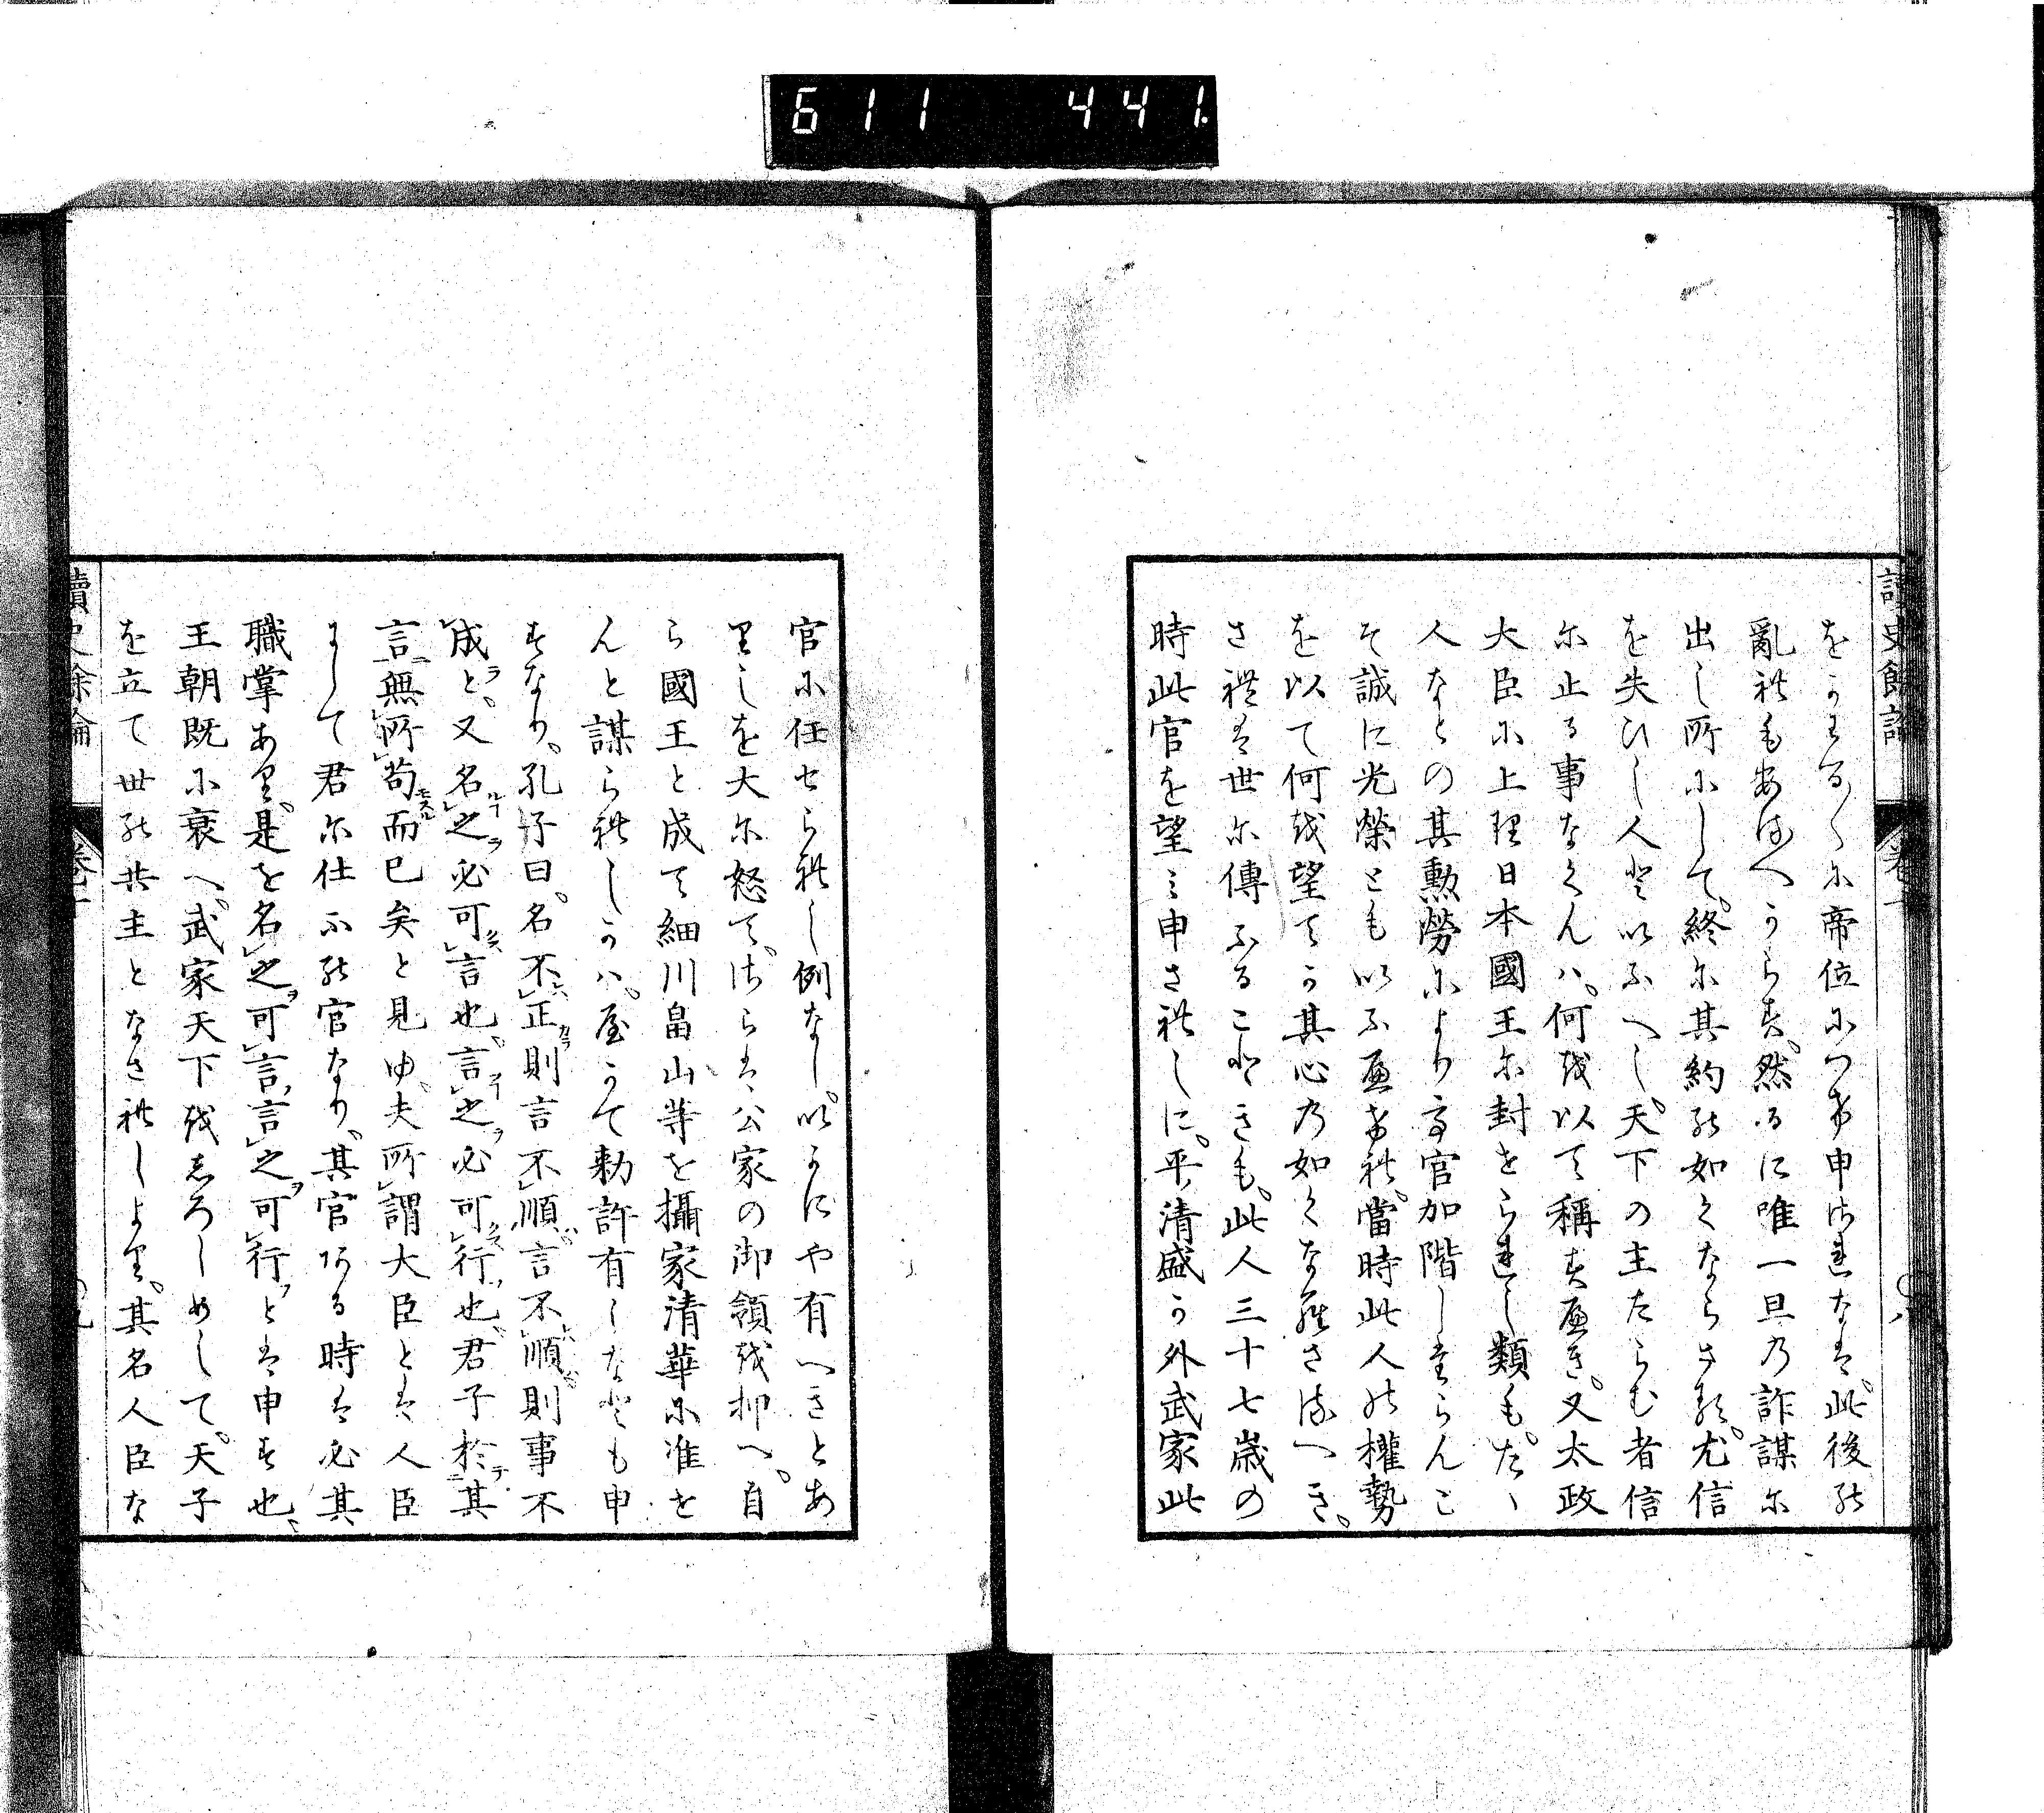 611 441
讀史餘論 卷十 ○八
をかはる〳〵に帝位につけ申されなは此後の
亂れもあるへからす然るに唯一旦の詐謀に
出し所にして終に其約の如くならさる尤信
を失ひし人といふへし天下の主たらむ者信
に止る事なくんハ何を以て稱すへき又太政
大臣に上り日本國王に封せられし類もたゝ
人なとの其勳勞により高官加階したらんこ
そ誠に光榮ともいふへけれ當時此人の權勢
を以て何を望てか其心の如くなるさるへき
されは世に傳ふることきも此人三十七歳の
時此官を望ミ申されしに平清盛か外武家此
官に任せられし例なしいかにや有へきとあ
りしを大に怒てさらは公家の御領を抑へ自
ら國王と成て細川畠山等を攝家清華に准せ
んと謀られしかハ屋かて勅許有しなとも申
すなり孔子曰名不正則言不順言不順則事不
成と又名之必可言也言之必可行也君子於其
言無所苟而已矣と見ゆ夫所謂大臣とは人臣
にして君に仕ふる官なり其官ある時は必其
職掌あり是を名之可言言之可行とは申す也
王朝既に衰へ武家天下をしろしめして天子
を立て世の共主となされしより其名人臣な
讀史餘論 卷十 ○九